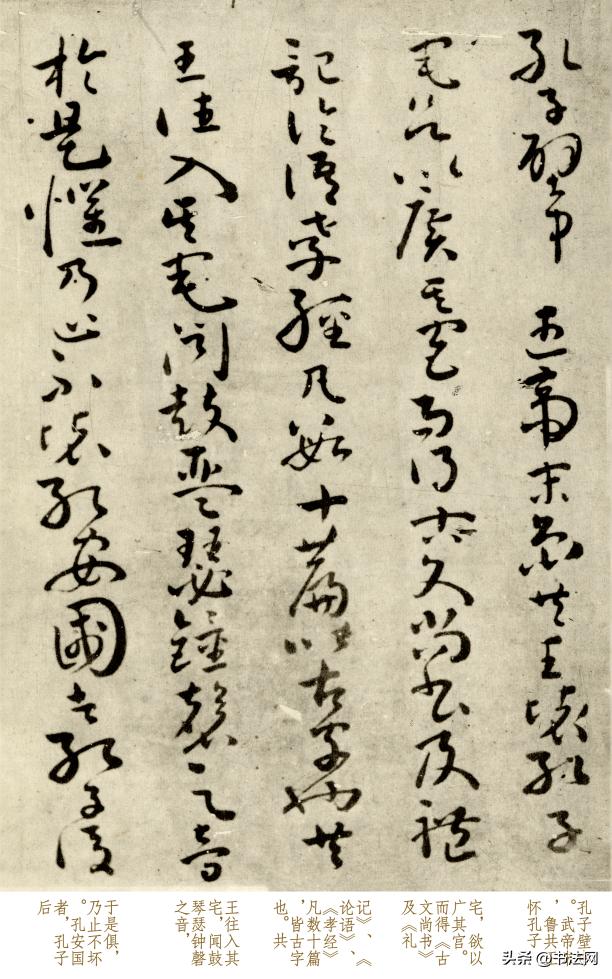 孔子壁中 武帝末魯共王壞孔子
宅欲以廣其宮而得古文尚書及禮
記論語孝經凡數十篇皆古字也共
王往入其宅聞鼓琴瑟鍾磬之音
於是懼乃止不壞孔安國者孔子後
孔子壁
。武帝
，鲁共
怀孔子
宅，欲以
广其宫。
而得《古
文尚书》
及《礼
记》、《
论语》、
《孝经》
凡数十篇
，皆古字
也。共
王往入其
宅，闻鼓
琴瑟钟磬
之音，
于是俱，
乃止不坏
。孔安国
者，孔子
后
头条 @书法网